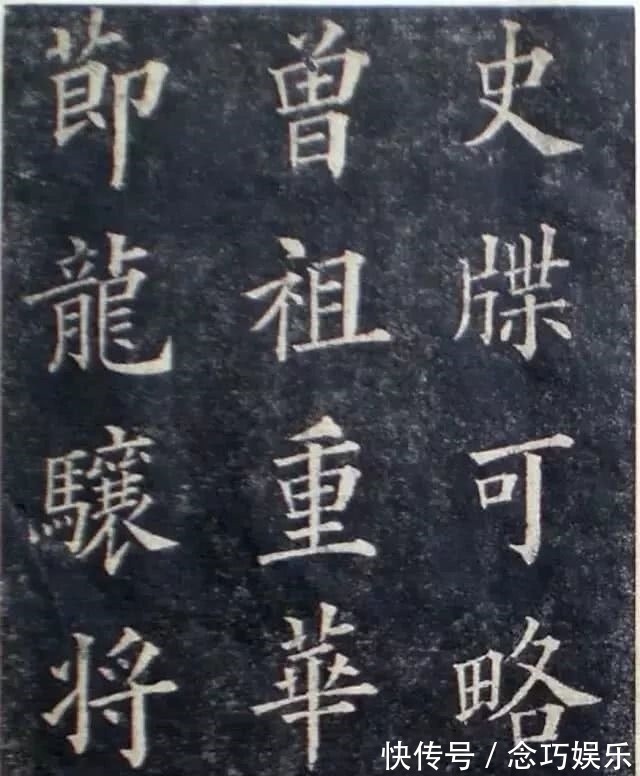 史牒可略
曾祖重華
節龍驤将
快传号／念巧娱乐